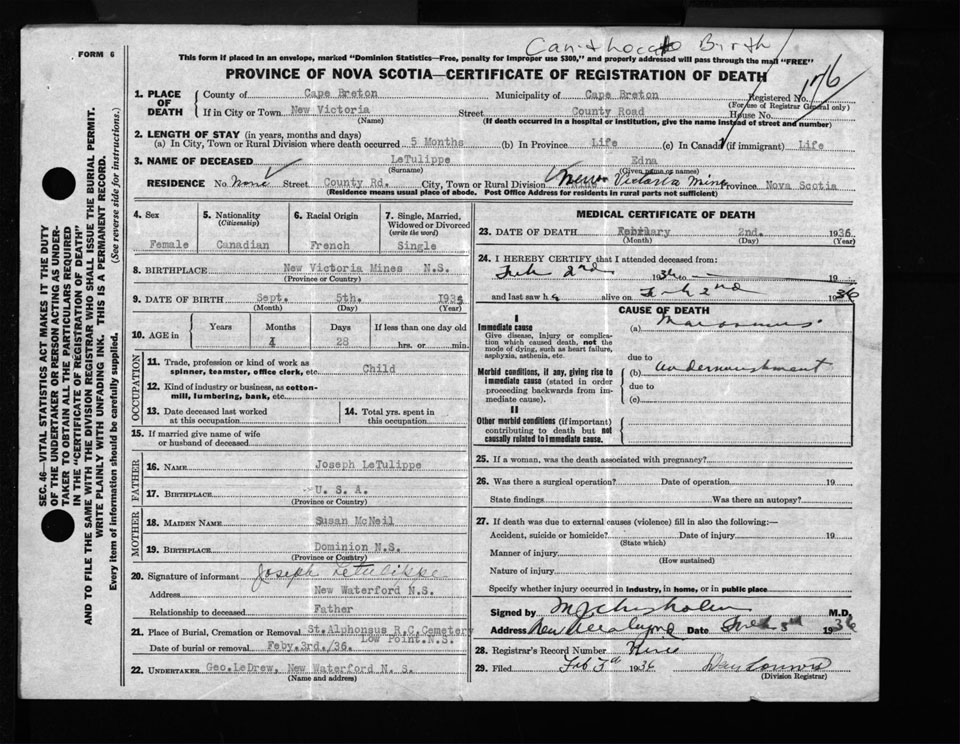 Can't Locate Birth
FORM 6
This form if placed in an envelope, marked "Dominion Statistics—Free, penalty for improper use $300," and properly addressed will pass through the mail "FREE"
PROVINCE OF NOVA SCOTIA—CERTIFICATE OF REGISTRATION OF DEATH
1. PLACE OF DEATH County of Cape Breton Municipality of Cape Breton Registered No. 176
(For use of Registrar General only)
If in City or Town New Victoria Street County Road House No.
(Name) (If death occurred in a hospital or institution, give the name instead of street and number)
2. LENGTH OF STAY (in years, months and days)
(a) In City, Town or Rural Division where death occurred 5 Months (b) In Province Life (c) In Canada (if immigrant) Life
3. NAME OF DECEASED LeTulippe Edna
(Surname) (Given name or names)
RESIDENCE No. None Street County Rd. City, Town or Rural Division New Victoria Mines Province Nova Scotia
(Residence means usual place of abode. Post Office Address for residents in rural parts not sufficient)
4. Sex
Female
5. Nationality
(Citizenship)
Canadian
6. Racial Origin
French
7. Single, Married, Widowed or Divorced
(write the word)
Single
8. BIRTHPLACE New Victoria Mines N.S.
(Province or Country)
9. DATE OF BIRTH Sept. 5th. 1935
(Month) (Day) (Year)
10. AGE in Years Months Days If less than one day old
4 28 hrs. or min.
OCCUPATION
11. Trade, profession or kind of work as
spinner, teamster, office clerk, etc. Child
12. Kind of industry or business, as cotton-
mill, lumbering, bank, etc.
13. Date deceased last worked
at this occupation
14. Total yrs. spent in
this occupation
15. If married give name of wife
or husband of deceased
FATHER
16. NAME Joseph LeTulippe
17. BIRTHPLACE U. S. A.
(Province or Country)
MOTHER
18. MAIDEN NAME Susan McNeil
19. BIRTHPLACE Dominion N.S.
(Province or Country)
20. Signature of informant Joseph Letulippe
Address New Waterford N.S.
Relationship to deceased Father
21. Place of Burial, Cremation or Removal St. Alphonsus R.C. Cemetery
Low Point.N.S.
Date of burial or removal Feby.3rd./36.
22. UNDERTAKER Geo.LeDrew, New Waterford N. S.
(Name and address)
MEDICAL CERTIFICATE OF DEATH
23. DATE OF DEATH February 2nd. 1936
(Month) (Day) (Year)
24. I HEREBY CERTIFY that I attended deceased from:
Feb 2nd 1936 to 19
and last saw h alive on Feb 2nd 1936
CAUSE OF DEATH
I
Immediate cause
Give disease, injury or complica-
tion which caused death, not the
mode of dying, such as heart failure,
asphyxia, asthenia, etc.
(a) Marasmus
due to
Morbid conditions, if any, giving rise to
immediate cause (stated in order
proceeding backwards from im-
mediate cause).
(b) undernourishment
due to
(c)
II
Other morbid conditions (if important)
contributing to death but not
causally related to immediate cause.
25. If a woman, was the death associated with pregnancy?
26. Was there a surgical operation? Date of operation 19
State findings Was there an autopsy?
27. If death was due to external causes (violence) fill in also the following:—
Accident, suicide or homicide? Date of injury 19
(State which)
Manner of injury
(How sustained)
Nature of injury
Specify whether injury occurred in industry, in home, or in public place
Signed by M.D.
Address New Waterford Date Feb 1936
28. Registrar's Record Number
29. Filed Feb 3rd 1936
(Division Registrar)
SEC. 46—VITAL STATISTICS ACT MAKES IT THE DUTY
OF THE UNDERTAKER OR PERSON ACTING AS UNDER-
TAKER TO OBTAIN ALL THE PARTICULARS REQUIRED
IN THE "CERTIFICATE OF REGISTRATION OF DEATH"
AND TO FILE THE SAME WITH THE DIVISION REGISTRAR WHO SHALL ISSUE THE BURIAL PERMIT.
WRITE PLAINLY WITH UNFADING INK. THIS IS A PERMANENT RECORD.
Every item of information should be carefully supplied. (See reverse side for instructions.)